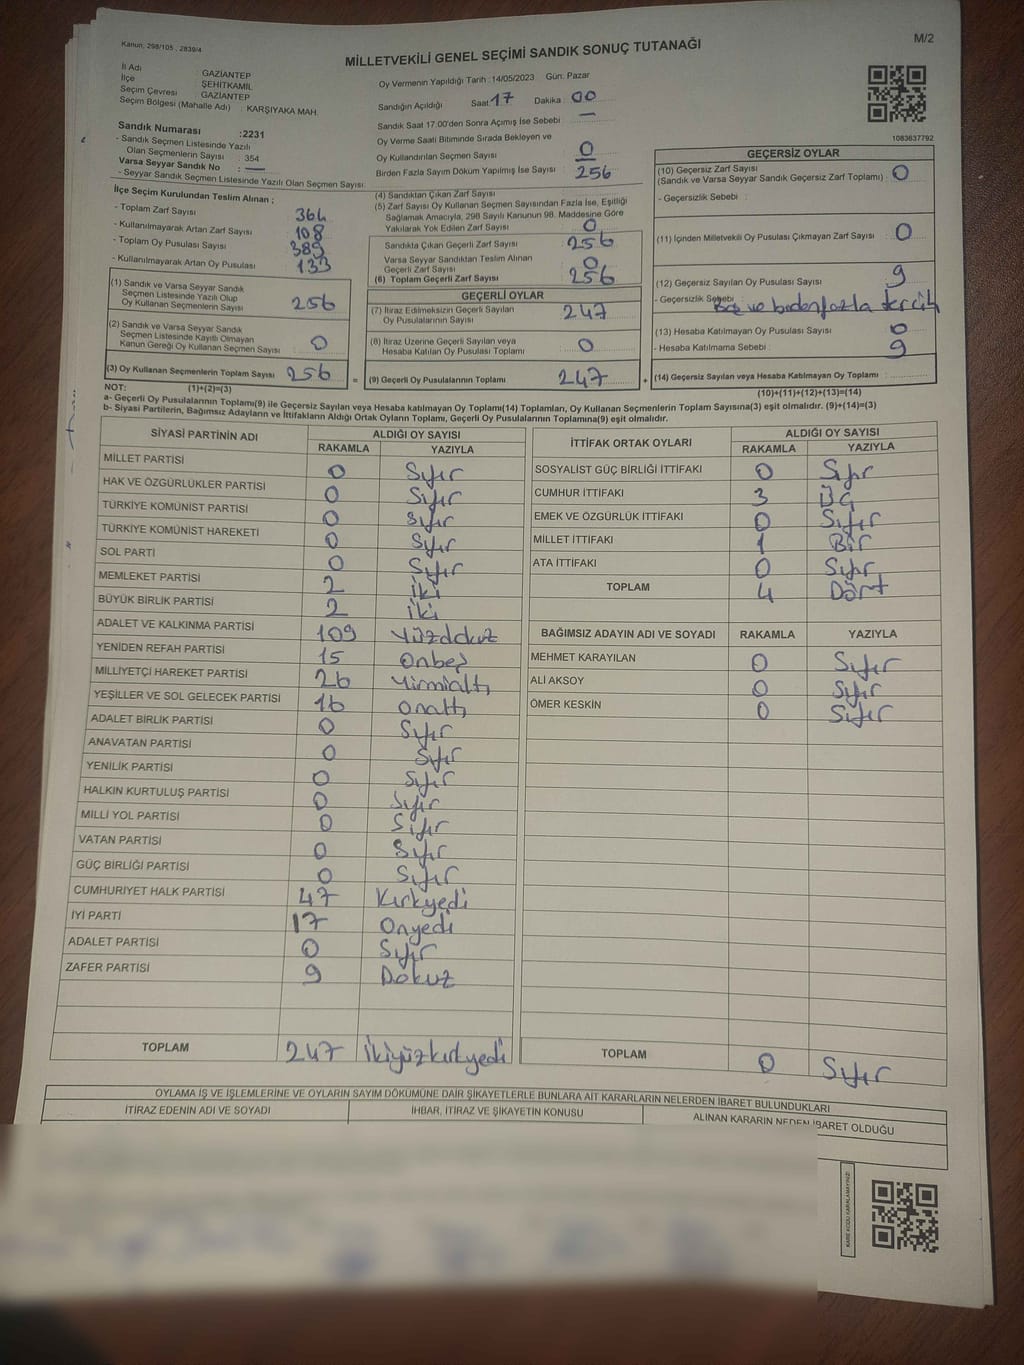 Kanun, 298/105 , 2839/4
M/2
MİLLETVEKİLİ GENEL SEÇİMİ SANDIK SONUÇ TUTANAĞI
İl Adı : GAZİANTEP
İlçe : ŞEHİTKAMİL
Seçim Çevresi : GAZİANTEP
Seçim Bölgesi (Mahalle Adı) : KARŞIYAKA MAH.
Sandık Numarası :2231
- Sandık Seçmen Listesinde Yazılı
Olan Seçmenlerin Sayısı : 354
Varsa Seyyar Sandık No : —
- Seyyar Sandık Seçmen Listesinde Yazılı Olan Seçmen Sayısı
Oy Vermenin Yapıldığı Tarih : 14/05/2023 Gün: Pazar
Sandığın Açıldığı Saat 17 Dakika : 00
Sandık Saat 17.00'den Sonra Açımış İse Sebebi : —
Oy Verme Saati Bitiminde Sırada Bekleyen ve
Oy Kullandırılan Seçmen Sayısı : 0
Birden Fazla Sayım Döküm Yapılmış İse Sayısı : —
1083637792
İlçe Seçim Kurulundan Teslim Alınan ;
- Toplam Zarf Sayısı : 364
- Kullanılmayarak Artan Zarf Sayısı : 108
- Toplam Oy Pusulası Sayısı : 389
- Kullanılmayarak Artan Oy Pusulası : 133
(1) Sandık ve Varsa Seyyar Sandık
Seçmen Listesinde Yazılı Olup
Oy Kullanan Seçmenlerin Sayısı : 256
(2) Sandık ve Varsa Seyyar Sandık
Seçmen Listesinde Kayıtlı Olmayan
Kanun Gereği Oy Kullanan Seçmen Sayısı : 0
(3) Oy Kullanan Seçmenlerin Toplam Sayısı : 256
(4) Sandıktan Çıkan Zarf Sayısı : 256
(5) Zarf Sayısı Oy Kullanan Seçmen Sayısından Fazla İse, Eşitliği
Sağlamak Amacıyla, 298 Sayılı Kanunun 98. Maddesine Göre
Yakılarak Yok Edilen Zarf Sayısı : 0
Sandıkta Çıkan Geçerli Zarf Sayısı : 256
Varsa Seyyar Sandıktan Teslim Alınan
Geçerli Zarf Sayısı : 0
(6) Toplam Geçerli Zarf Sayısı : 256
GEÇERLİ OYLAR
(7) İtiraz Edilmeksizin Geçerli Sayılan
Oy Pusulalarının Sayısı : 247
(8) İtiraz Üzerine Geçerli Sayılan veya
Hesaba Katılan Oy Pusulası Toplamı : 0
= (9) Geçerli Oy Pusulalarının Toplamı : 247
GEÇERSİZ OYLAR
(10) Geçersiz Zarf Sayısı
(Sandık ve Varsa Seyyar Sandık Geçersiz Zarf Toplamı) : 0
- Geçersizlik Sebebi :
(11) İçinden Milletvekili Oy Pusulası Çıkmayan Zarf Sayısı : 0
(12) Geçersiz Sayılan Oy Pusulası Sayısı : 9
- Geçersizlik Sebebi : Boş ve birden fazla tercih
(13) Hesaba Katılmayan Oy Pusulası Sayısı : 0
- Hesaba Katılmama Sebebi :
+ (14) Geçersiz Sayılan veya Hesaba Katılmayan Oy Toplamı : 9
NOT: (1)+(2)=(3) (10)+(11)+(12)+(13)=(14)
a- Geçerli Oy Pusulalarının Toplamı(9) ile Geçersiz Sayılan veya Hesaba katılmayan Oy Toplamı(14) Toplamları, Oy Kullanan Seçmenlerin Toplam Sayısına(3) eşit olmalıdır. (9)+(14)=(3)
b- Siyasi Partilerin, Bağımsız Adayların ve İttifakların Aldığı Ortak Oyların Toplamı, Geçerli Oy Pusulalarının Toplamına(9) eşit olmalıdır.
SİYASİ PARTİNİN ADI ALDIĞI OY SAYISI
RAKAMLA YAZIYLA
MİLLET PARTİSİ 0 Sıfır
HAK VE ÖZGÜRLÜKLER PARTİSİ 0 Sıfır
TÜRKİYE KOMÜNİST PARTİSİ 0 Sıfır
TÜRKİYE KOMÜNİST HAREKETİ 0 Sıfır
SOL PARTİ 0 Sıfır
MEMLEKET PARTİSİ 2 iki
BÜYÜK BİRLİK PARTİSİ 2 iki
ADALET VE KALKINMA PARTİSİ 109 Yüzdokuz
YENİDEN REFAH PARTİSİ 15 Onbeş
MİLLİYETÇİ HAREKET PARTİSİ 26 Yirmialtı
YEŞİLLER VE SOL GELECEK PARTİSİ 16 Onaltı
ADALET BİRLİK PARTİSİ 0 Sıfır
ANAVATAN PARTİSİ 0 Sıfır
YENİLİK PARTİSİ 0 Sıfır
HALKIN KURTULUŞ PARTİSİ 0 Sıfır
MİLLİ YOL PARTİSİ 0 Sıfır
VATAN PARTİSİ 0 Sıfır
GÜÇ BİRLİĞİ PARTİSİ 0 Sıfır
CUMHURİYET HALK PARTİSİ 47 Kırkyedi
İYİ PARTİ 17 Onyedi
ADALET PARTİSİ 0 Sıfır
ZAFER PARTİSİ 9 Dokuz
TOPLAM 247 ikiyüzkırkyedi
İTTİFAK ORTAK OYLARI ALDIĞI OY SAYISI
RAKAMLA YAZIYLA
SOSYALİST GÜÇ BİRLİĞİ İTTİFAKI 0 Sıfır
CUMHUR İTTİFAKI 3 Üç
EMEK VE ÖZGÜRLÜK İTTİFAKI 0 Sıfır
MİLLET İTTİFAKI 1 Bir
ATA İTTİFAKI 0 Sıfır
TOPLAM 4 Dört
BAĞIMSIZ ADAYIN ADI VE SOYADI RAKAMLA YAZIYLA
MEHMET KARAYILAN 0 Sıfır
ALİ AKSOY 0 Sıfır
ÖMER KESKİN 0 Sıfır
TOPLAM 0 Sıfır
OYLAMA İŞ VE İŞLEMLERİNE VE OYLARIN SAYIM DÖKÜMÜNE DAİR ŞİKAYETLERLE BUNLARA AİT KARARLARIN NELERDEN İBARET BULUNDUKLARI
İTİRAZ EDENİN ADI VE SOYADI İHBAR, İTİRAZ VE ŞİKAYETİN KONUSU ALINAN KARARIN NEDEN İBARET OLDUĞU
KARE KODU KARALAMAYINIZ!